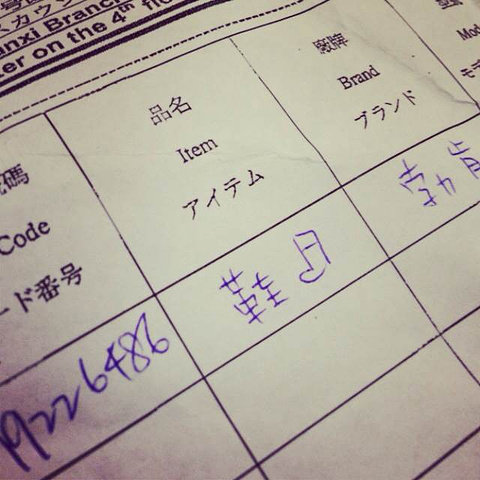 スカウン
nxi Branch
ter on the 4th flo
碼
Code
ード番号
品名
Item
アイテム
廠牌
Brand
ブランド
Mod
モデ
9226486
鞋
勃肯